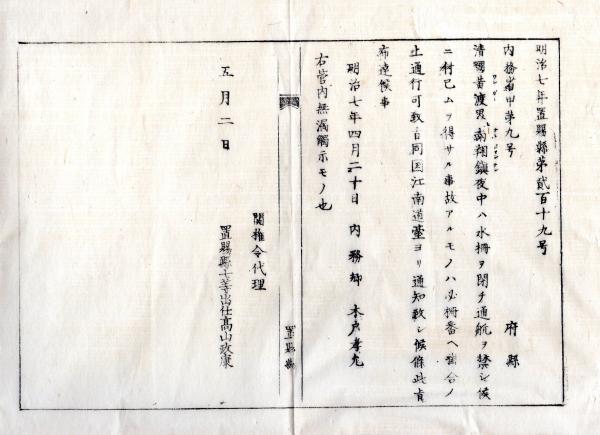 明治七年置賜縣第貳百十九号
内務省甲第九号
府縣
清國黄渡及南翔鎮夜中ハ水柵ヲ閉チ通航ヲ禁シ候
ニ付已ムヲ得サル事故アルモノハ必柵番ヘ引合ノ
上通行可致旨同国江南道臺ヨリ通知致シ候條此旨
布達候事
明治七年四月二十日 内務卿 木戸孝允
右管内無漏觸示モノ也
五月二日
関権令代理
置賜縣七等出仕髙山政康
置賜縣